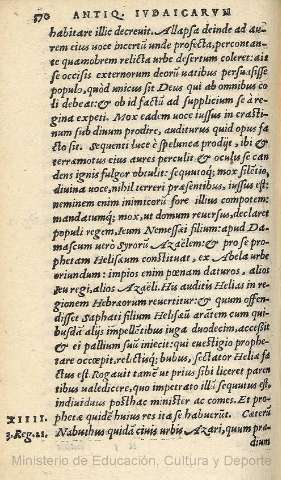 570 ANTIQ. IVDAICARVM
habitare illic decreuit. Allapsa deinde ad au-
rem eius uoce incertũ unde profecta, percontan-
te quamobrem relicta urbe desertum coleret: ait
se occisis externorum deorũ uatibus persuasisse
populo, quòd unicus sit Deus qui ab omnibus co
li debeat: & ob id factũ ad supplicium se à re-
gina expeti. Mox eadem uoce iussus in crasti-
num sub diuum prodire, auditurus quid opus fa
cto sit. Sequenti luce è spelunca prodijt, ibi &
terræmotus eius aures perculit & oculis se can
dens ignis fulgor obtulit: sequutoq́; mox silẽtio,
diuina uoce, nihil terreri præsentibus, iussus est:
neminem enim inimicorũ fore illius compotem:
mandatumq́; mox, ut domum reuersus, declaret
populi regem, Ieum Nemessæi filium: apud Da-
mascum uerò Syrorũ Azaëlem: & pro se pro-
phetam Helisæum constituat, ex Abela urbe
oriundum: impios enim pœnam daturos, alios
Ieu regi, alios Azaëli. His auditis Helias in re-
gionem Hebræorum reuertitur: & quum offen-
disset Saphati filium Helisæũ arãtem cum qui-
busdã alijs impellẽtibus iuga duodecim, accessit
& ei pallium suũ iniecit: qui euestigio prophe-
tare occœpit, relictisq́; bubus, sectator Heliæ fa
ctus est. Rogauit tamẽ ut prius sibi liceret paren
tibus ualedicere, quo impetrato illũ sequutus est,
indiuidus posthac minister ac comes. Et pro-
phetæ quidẽ huius res ita se habuerũt. Caterũ
XIIII. Nabuthus quidã ciuis urbis Azari, quum præ
3. Reg. 21. dium
Ministerio de Educación, Cultura y Deporte